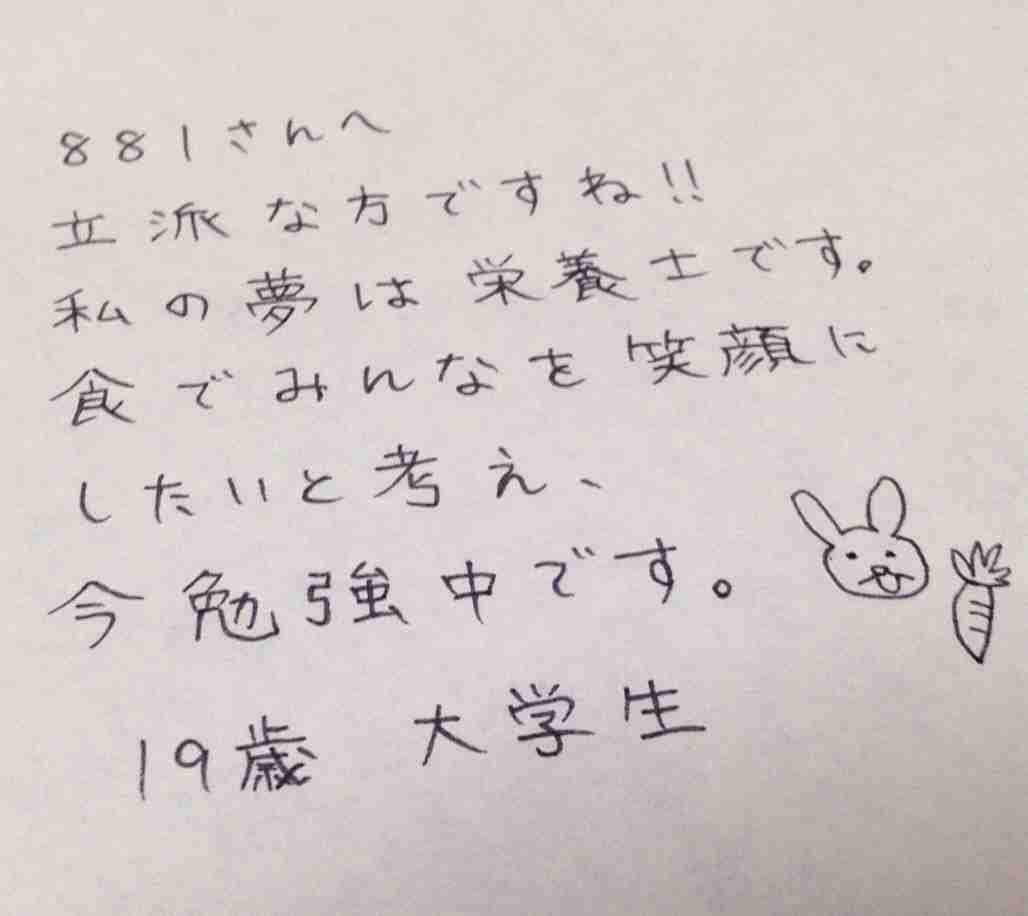 881さんへ
立派な方ですね!!
私の夢は栄養士です。
食でみんなを笑顔に
したいと考え、
今勉強中です。
19歳 大学生